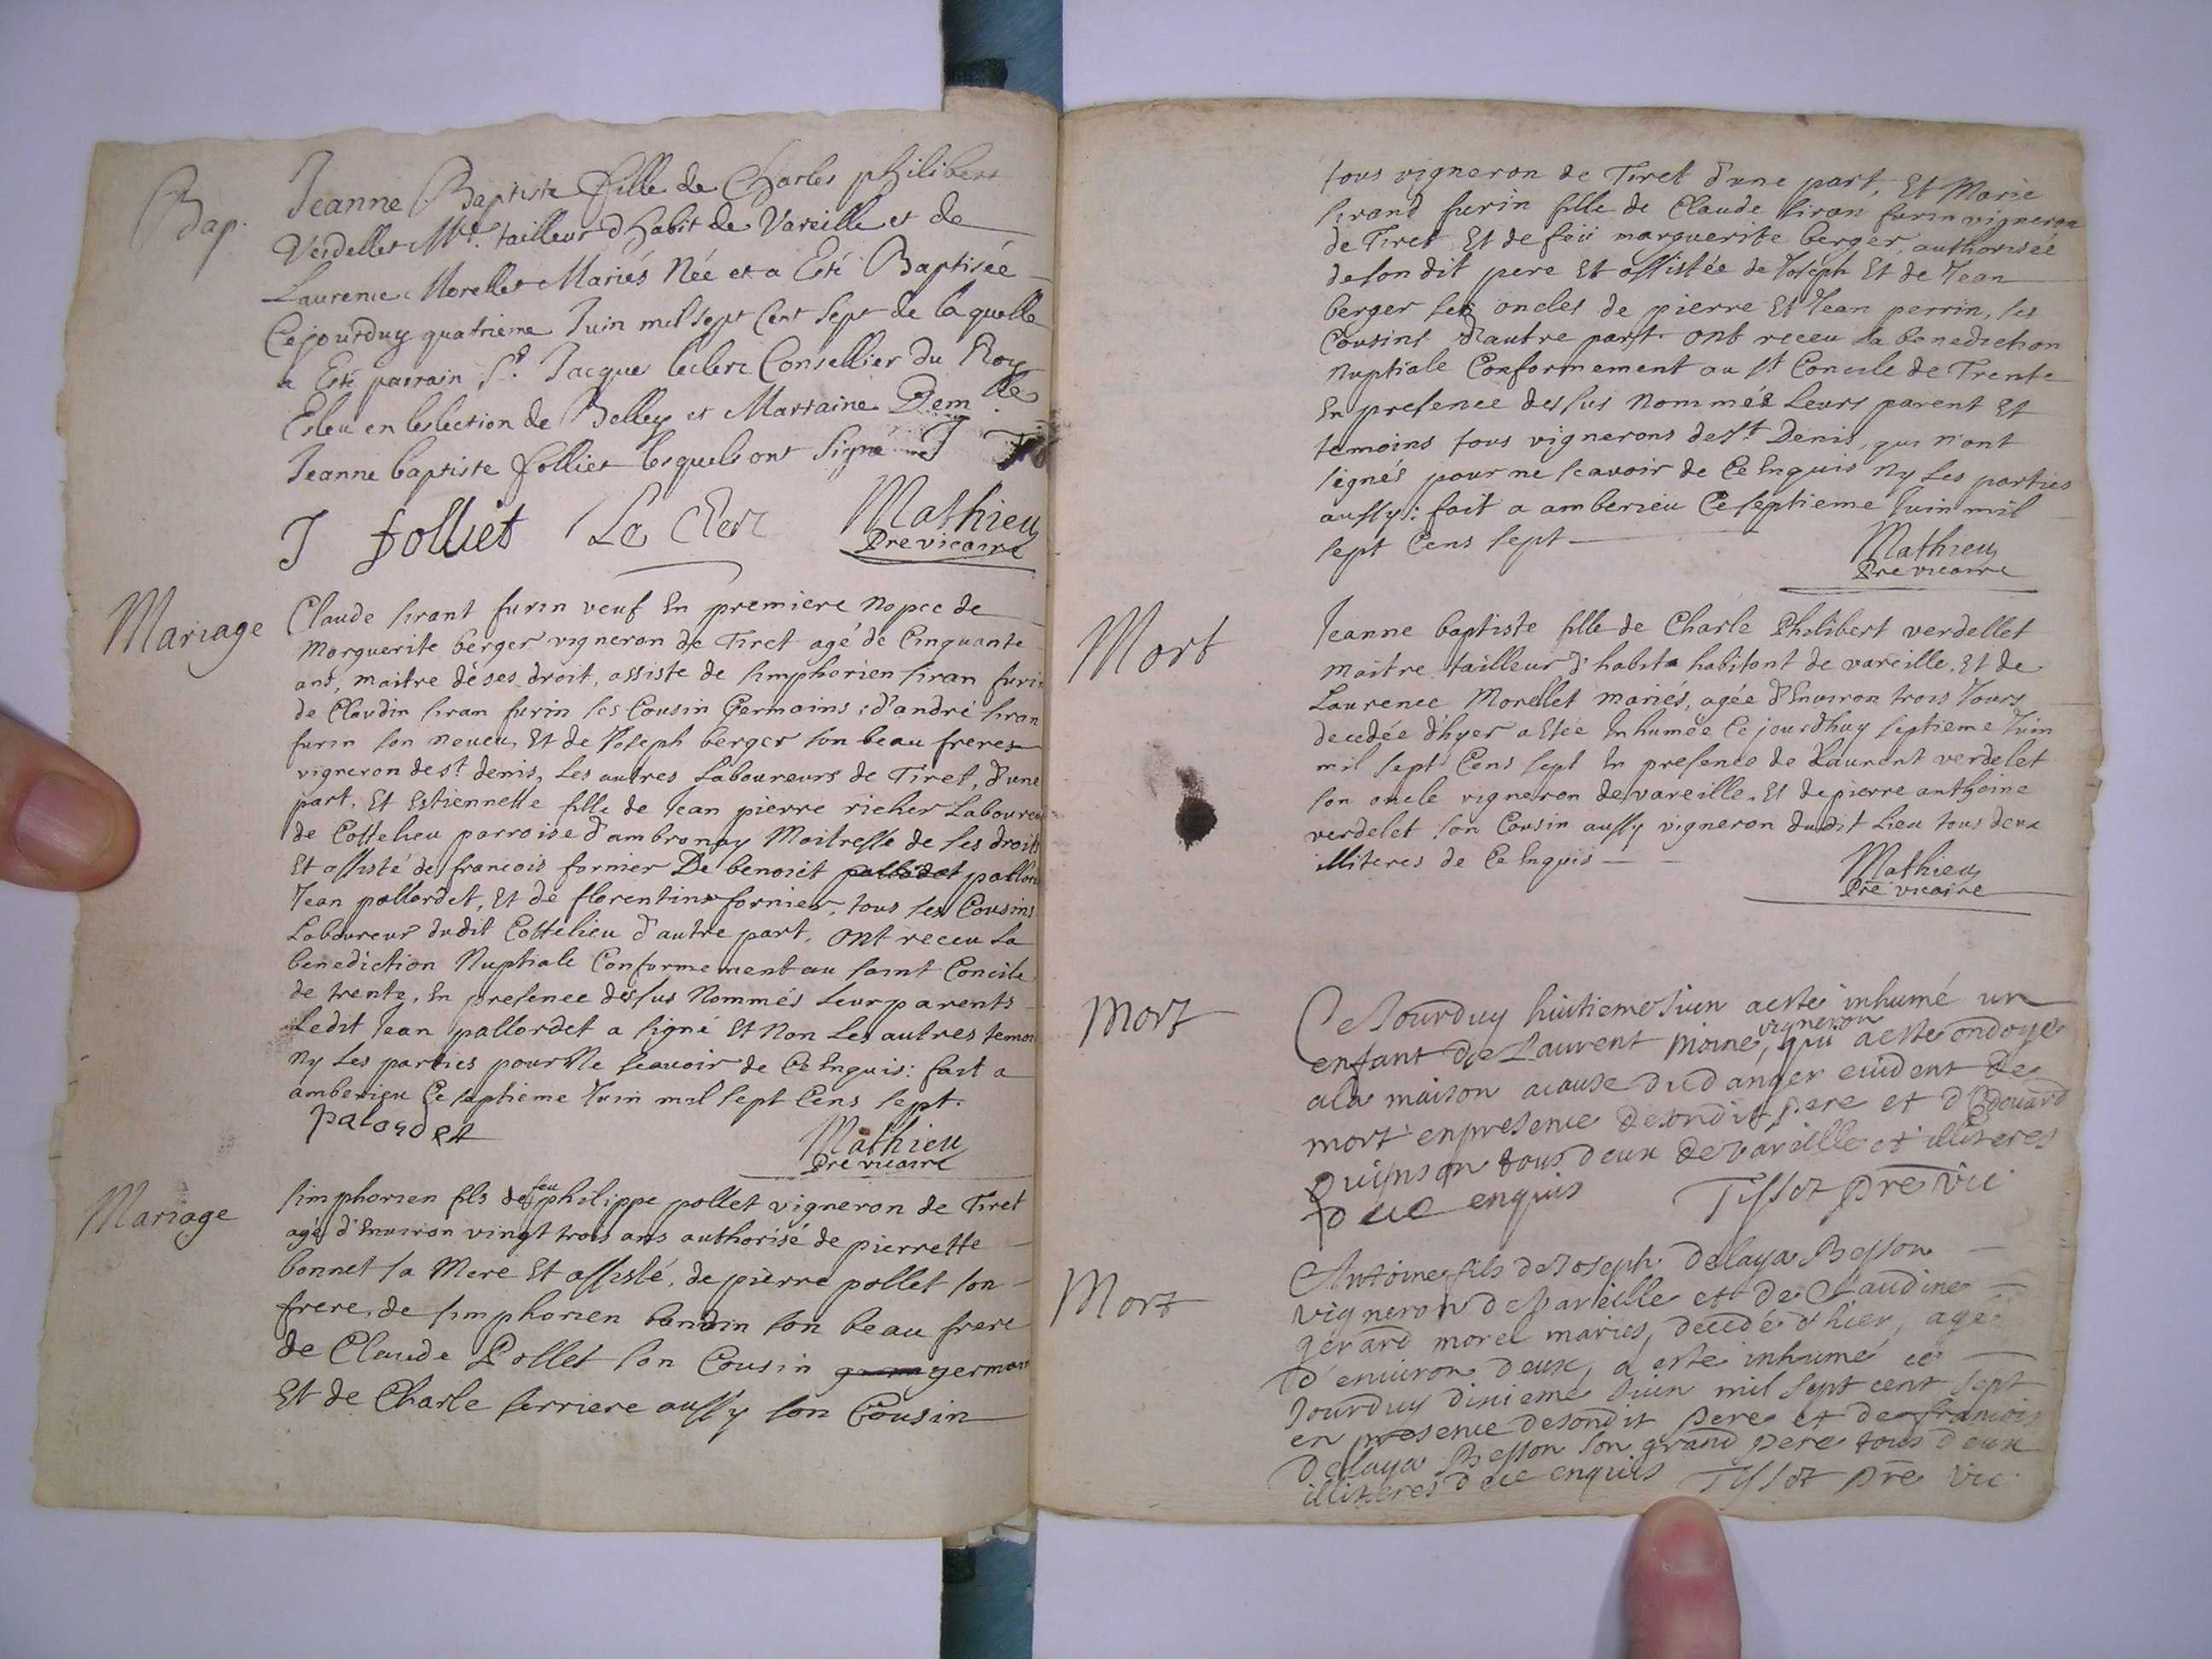 Bap.
Jeanne Baptiste fille de Charles philibert
Verdellet Mre. tailleur dhabit de Vareille et de
Laurence Morellet Mariés Née et a Esté Baptisée
Cejourduy quatrieme Juin mil sept Cent sept de laquelle
a Esté parrain Sr. Jacque leclerc Consellier du Roy
Esleu en leslection de Belley et Marraine Demlle
Jeanne baptiste folliet lesquels ont signé
J folliet Le Clerc Mathieu
Pre vicaire
Mariage
Claude sirant furin veuf En premiere nopce de
Marguerite berger vigneron de Tiret agé de Cinquante
ans, maitre de ses droit, assiste de simphorien siran furin
de Claudin siran furin ses Cousin Germains; d'andré siran
furin son neveu, Et de Joseph berger son beau freres
vigneron de st denis, Les autres Laboureurs de Tiret, d'une
part, Et Estiennette fille de Jean pierre richer Laboureu
de Cottelieu parroise d'ambronay Maitresse de ses droits
Et assisté de francois fornier De benoiet
Jean pallordet, Et de florentins fornier, tous ses Cousins
Laboureurs dudit Cottelieu d'autre part, ont receu La
benediction Nuptiale Conformement au saint Concile
de trente, En presence dessus Nommés Leur parents
Ledit Jean pallordet a signé Et Non Les autres temoi
Ny Les parties pour Ne scavoir de Ce Enquis: fait a
amberieu Ce septieme Juin mil sept Cens sept.
palordet Mathieu
Pre vicaire
Mariage
simphorien fils de feu philippe pollet vigneron de Tiret
agé d'Environ vingt trois ans authorisé de pierrette
bonnet sa Mere Et assisté, de pierre pollet son
frere, de simphorien bondin son beau frere
de Claude Pollet son Cousin germain
Et de Charle ferriere aussy son Cousin
tous vigneron de Tiret d'une part, Et Marie
sirand furin fille de Claude siran furin vigneron
de Tiret Et de feü marguerite berger, authorisée
de son dit pere Et assistée de Joseph Et de Jean
berger ses oncles de pierre Et Jean perrin, ses
Cousins d'autre part ont receu La benediction
Nuptiale Conformement au st Concile de Trente
En presence dessus Nommés Leurs parent Et
temoins tous vignerons de st Denis, qui n'ont
signés pour ne scavoir de Ce Enquis Ny Les parties
aussy: fait a amberieu Ce septieme Juin mil
sept Cens sept
Mathieu
Pre vicaire
Mort
Jeanne baptiste fille de Charle Philibert verdellet
maitre tailleur d'habit habitant de vareille, Et de
Laurence Morellet mariés, agée d'Environ trois Jours
decedée d'hyer a Estée Inhumée Ce jourdhuy septieme Juin
mil sept Cens sept En presence de Laurent verdelet
son oncle vigneron de vareille, Et de pierre anthoine
verdelet son Cousin aussy vigneron dudit Lieu tous deux
illiteres de Ce Enquis
Mathieu
Pre vicaire
Mort
Ce Jourduy huitieme Juin a esté inhumé un
enfant de Laurent moine, vigneron qui a esté ondoyé
a la maison a cause du danger evident de
mort en presence de son dit pere et d'Edouard
Quinson tous deux de vareille et illiteres
de ce enquis Tissot pre vic
Mort
Antoine fils de Joseph delaya Besson
vigneron de Vareille et de Claudine
gerard morel mariés, decedé d'hier, agé
d'environ deux, a esté inhumé ce
Jourduy dixieme Juin mil sept cent sept
en presence de son dit pere et de francois
delaya Besson son grand pere tous deux
illiteres de ce enquis Tissot pre vic